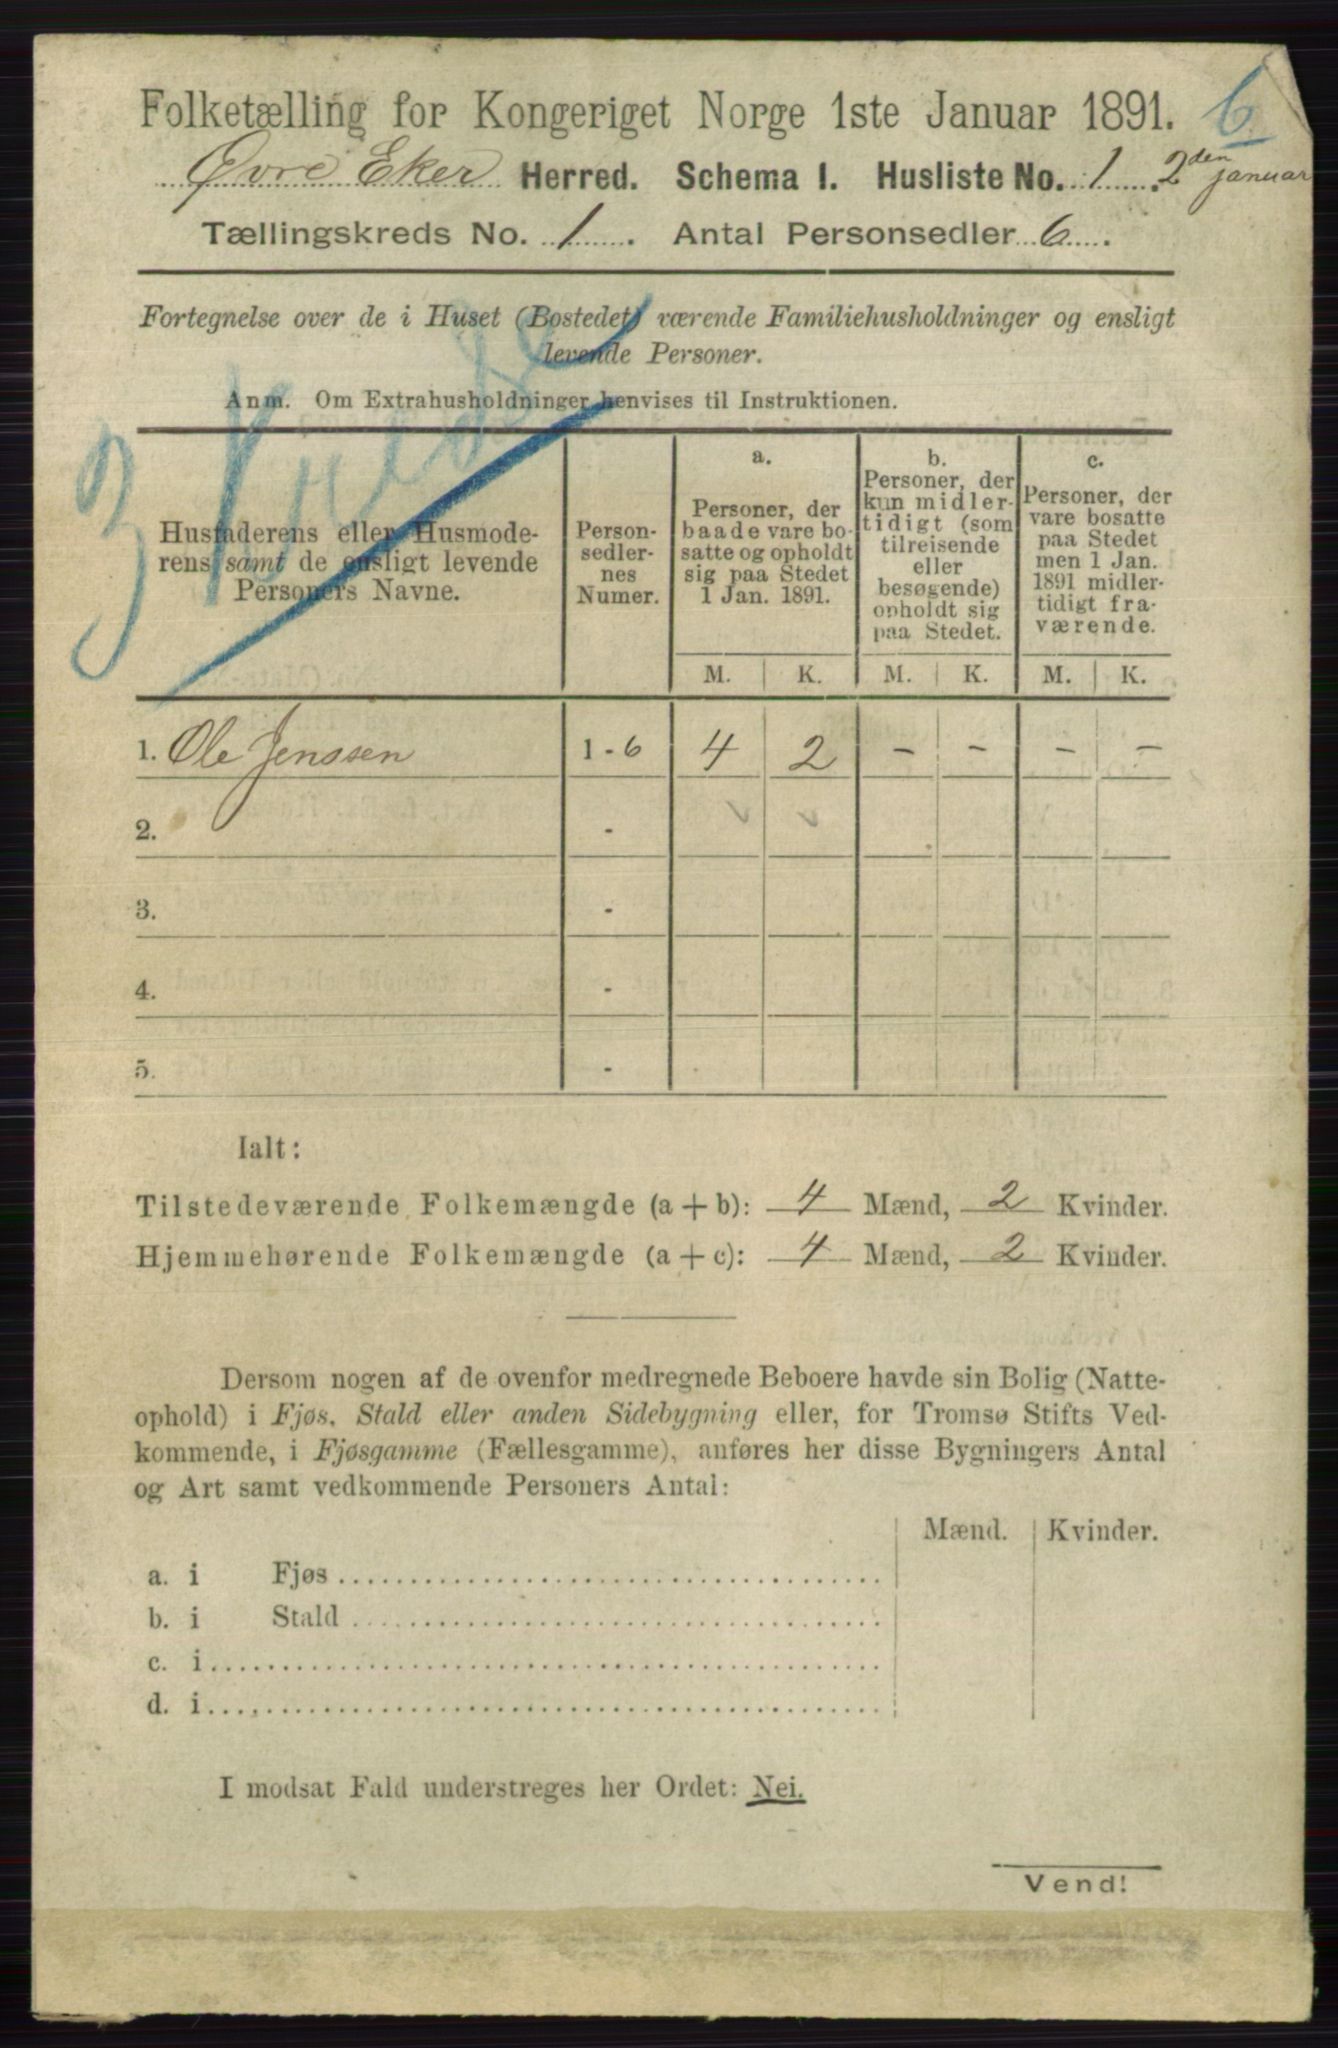 Folketælling for Kongeriget Norge 1ste Januar 1891. 6
Øvre Eker Herred. Schema I. Husliste No. 1. 2den januar
Tællingskreds No. 1. Antal Personsedler 6.
Fortegnelse over de i Huset (Bostedet) værende Familiehusholdninger og ensligt
levende Personer.
Anm. Om Extrahusholdninger henvises til Instruktionen.
3 Kreds
Husfaderens eller Husmode-
rens samt de ensligt levende
Personers Navne.
Person-
sedler-
nes
Numer.
a.
Personer, der
baade vare bo-
satte og opholdt
sig paa Stedet
1 Jan. 1891.
b.
Personer, der
kun midler-
tidigt (som
tilreisende
eller
besøgende)
opholdt sig
paa Stedet.
c.
Personer, der
vare bosatte
paa Stedet
men 1 Jan.
1891 midler-
tidigt fra-
værende.
M. K. M. K. M. K.
1. Ole Jenssen 1 - 6 4 2 - - - -
2. -
3. -
4. -
5. -
Ialt:
Tilstedeværende Folkemængde (a + b): 4 Mænd, 2 Kvinder.
Hjemmehørende Folkemængde (a + c): 4 Mænd, 2 Kvinder.
Dersom nogen af de ovenfor medregnede Beboere havde sin Bolig (Natte-
ophold) i Fjøs, Stald eller anden Sidebygning eller, for Tromsø Stifts Ved-
kommende, i Fjøsgamme (Fællesgamme), anføres her disse Bygningers Antal
og Art samt vedkommende Personers Antal:
Mænd. Kvinder.
a. i Fjøs
b. i Stald
c. i
d. i
I modsat Fald understreges her Ordet: Nei.
Vend!